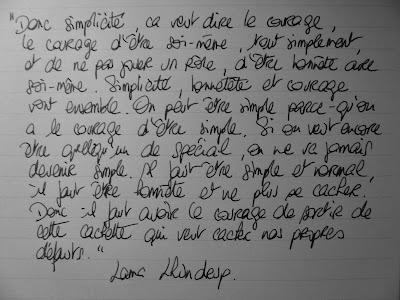 "Donc simplicité, ca veut dire le courage,
le courage d'être soi-même, tout simplement,
et de ne pas jouer un rôle, d'être honnête avec
soi-même. Simplicité, honnêteté et courage
vont ensemble. On peut être simple parce-qu'on
a le courage d'être simple. Si on veut encore
être quelqu'un de spécial, on ne va jamais
devenir simple. Il faut être simple et normal,
il faut être honnête et ne plus se cacher.
Donc il faut avoir le courage de sortir de
cette cachette qui veut cacher nos propres
défauts."
Lama Lhündrup.